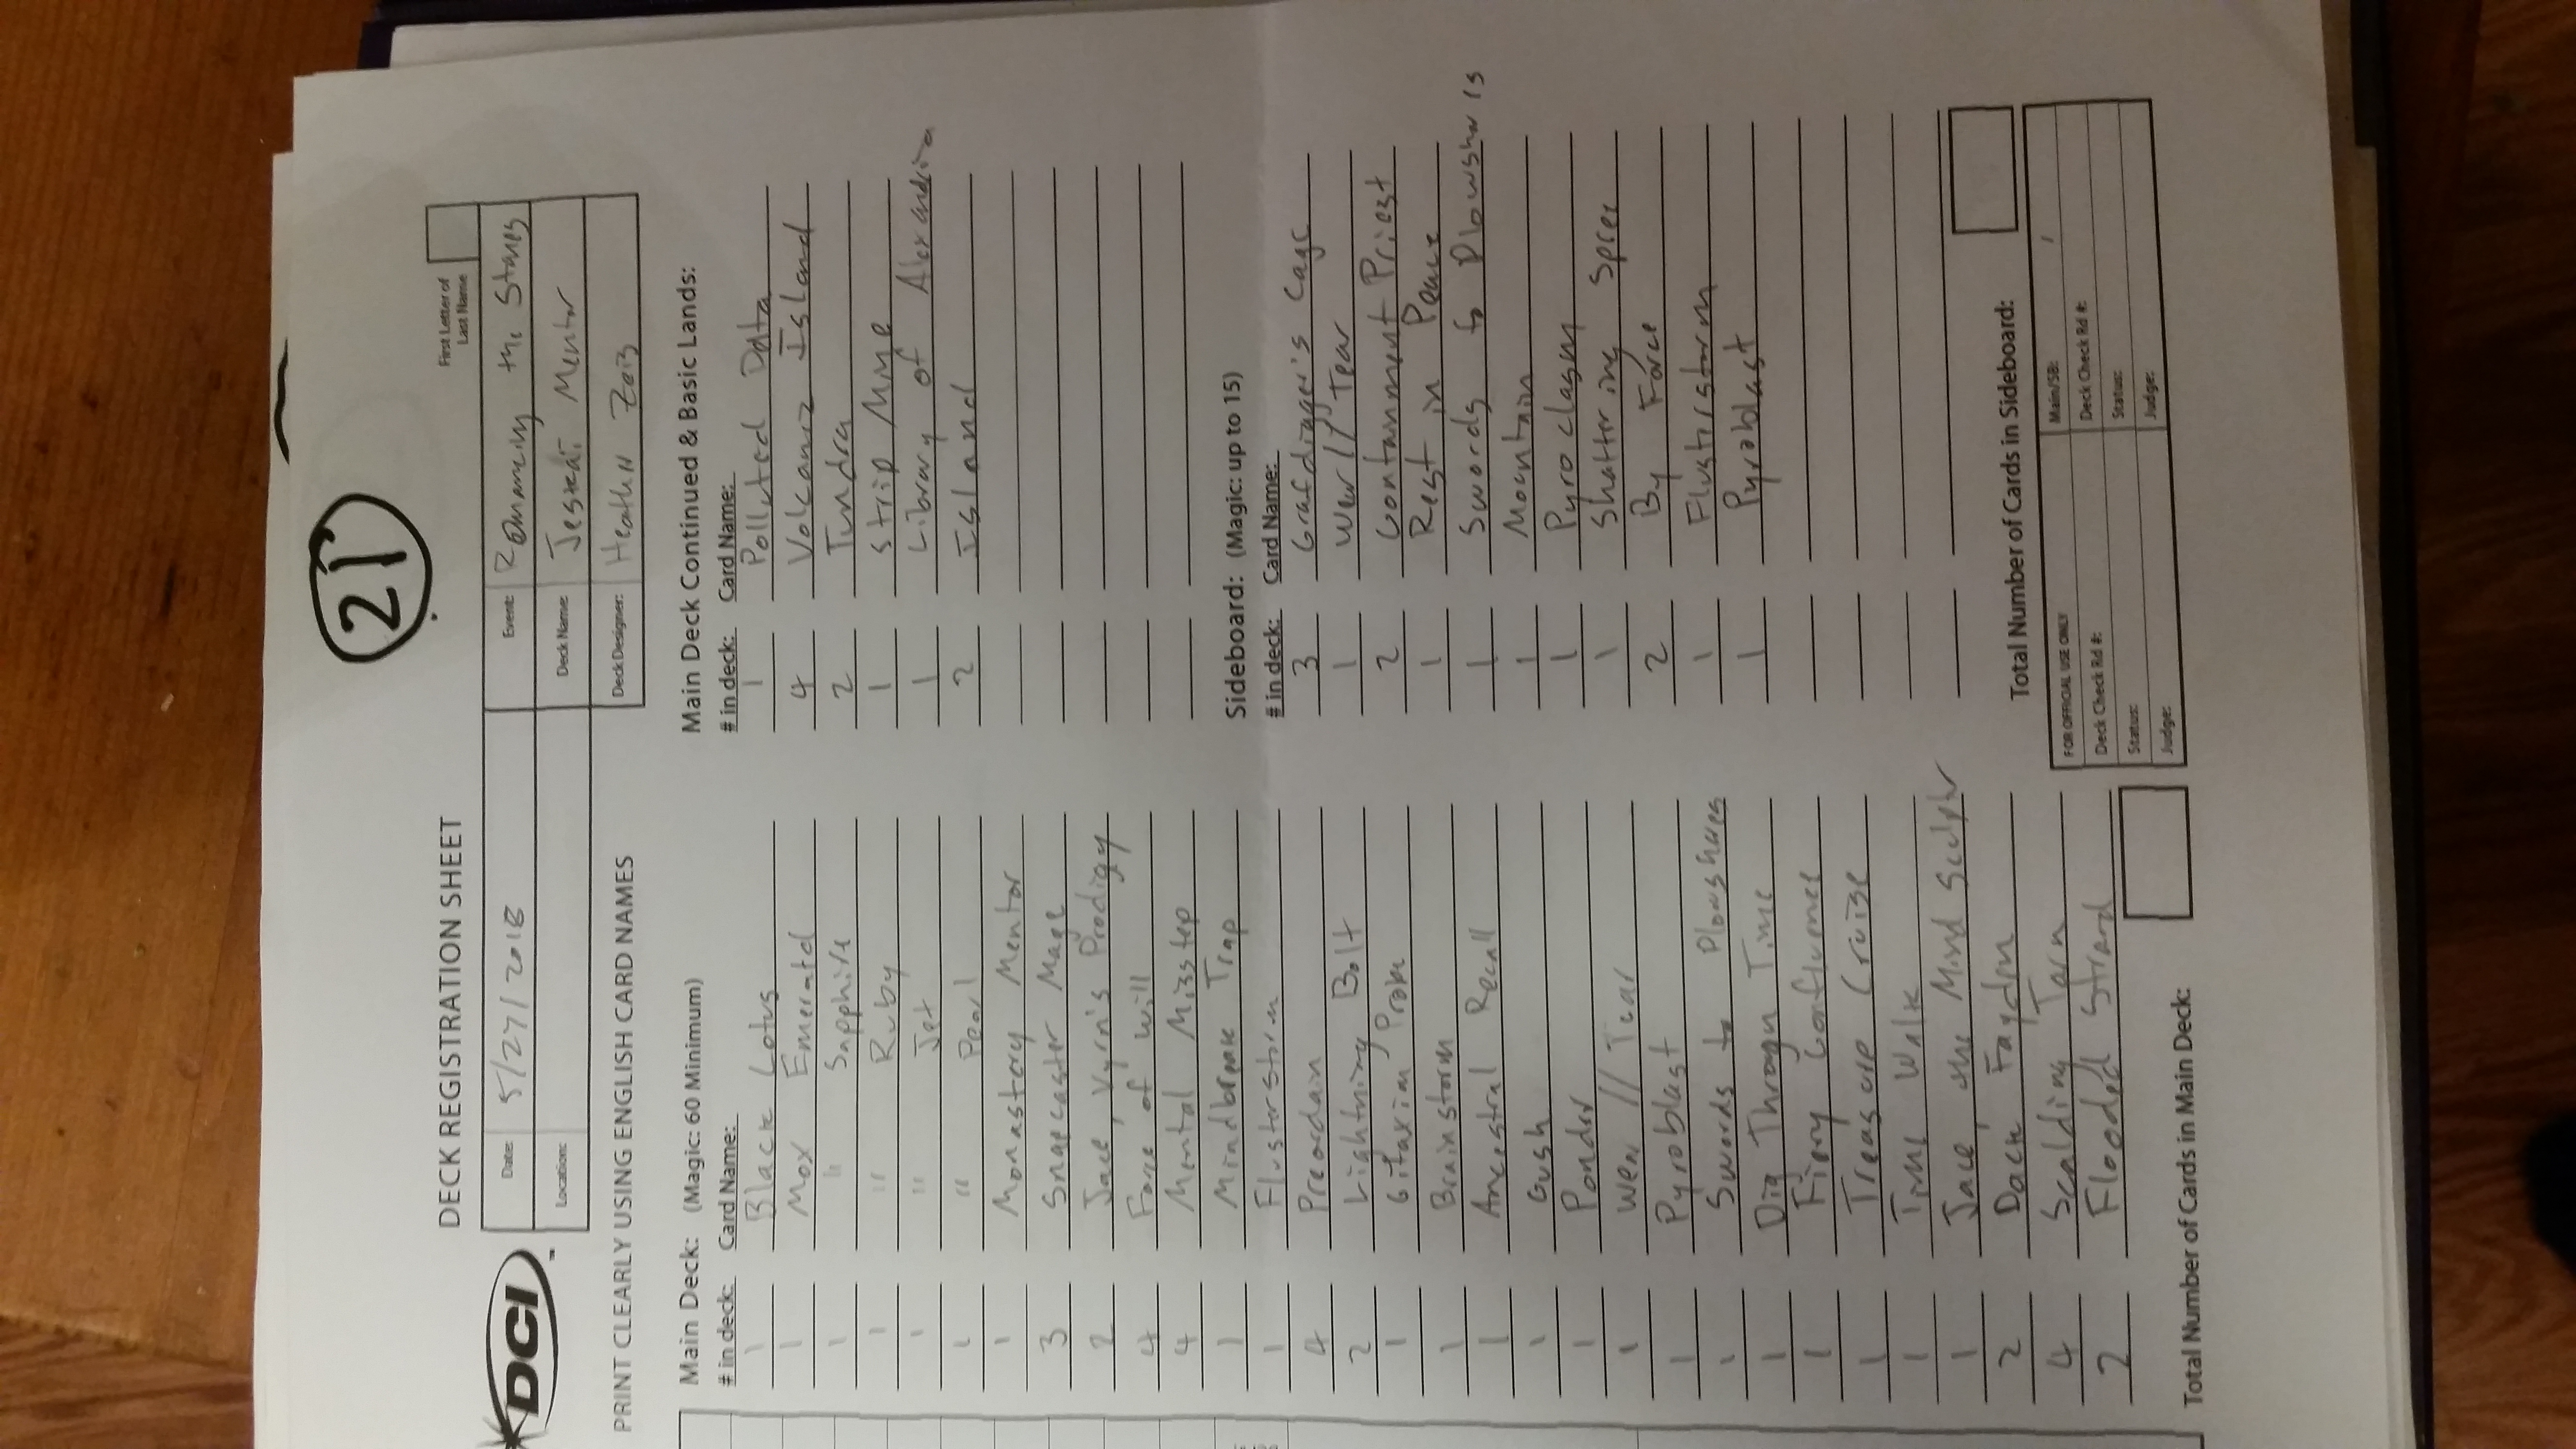 21
DECK REGISTRATION SHEET
First Letter of
Last Name
DCI
Date: 5/27/2018
Event: Romancing the Stones
Location:
Deck Name: Jeskai Mentor
PRINT CLEARLY USING ENGLISH CARD NAMES
Deck Designer: Heath
Main Deck: (Magic: 60 Minimum)
# in deck: Card Name:
1 Black Lotus
1 Mox Emerald
1 " Sapphire
1 " Ruby
1 " Jet
1 " Pearl
1 Monastery Mentor
3 Snapcaster Mage
2 Jace, Vyrn's Prodigy
4 Force of Will
4 Mental Misstep
1 Mindbreak Trap
1 Flusterstorm
4 Preordain
2 Lightning Bolt
1 Gitaxian Probe
1 Brainstorm
1 Ancestral Recall
1 Gush
1 Ponder
1 Wear // Tear
1 Pyroblast
1 Swords to Plowshares
1 Dig Through Time
1 Fiery Confluence
1 Treasure Cruise
1 Time Walk
1 Jace, the Mind Sculptr
2 Dack Fayden
4 Scalding Tarn
2 Flooded Strand
Total Number of Cards in Main Deck:
Main Deck Continued & Basic Lands:
# in deck: Card Name:
1 Polluted Delta
4 Volcanic Island
2 Tundra
1 Strip Mine
1 Library of Alexandria
2 Island
Sideboard: (Magic: up to 15)
# in deck: Card Name:
3 Grafdigger's Cage
1 Wear // Tear
2 Containment Priest
1 Rest in Peace
1 Swords to Plowshares
1 Mountain
1 Pyroclasm
1 Shattering Spree
2 By Force
1 Flusterstorm
1 Pyroblast
Total Number of Cards in Sideboard:
FOR OFFICIAL USE ONLY
Main/SB: /
Deck Check Rd #:
Deck Check Rd #:
Status:
Status:
Judge:
Judge: